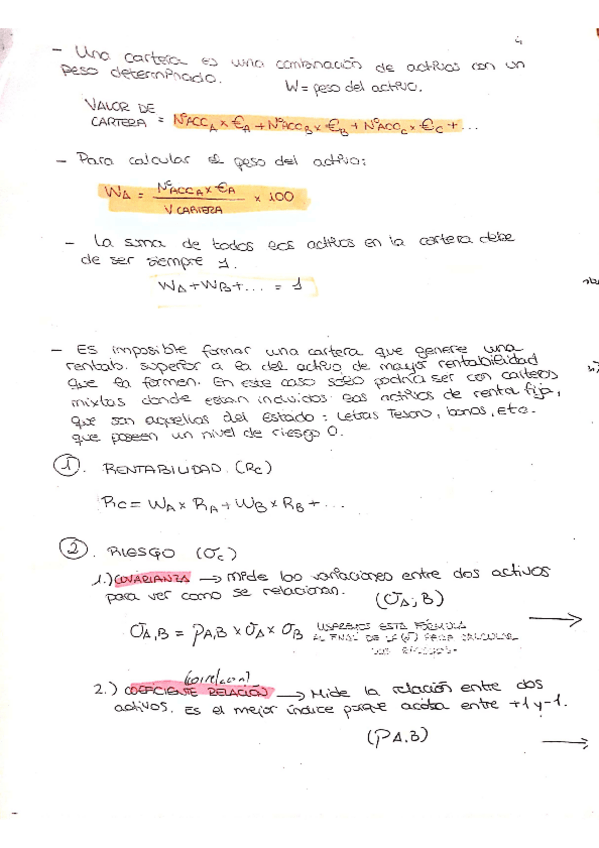 4
- Una cartera es una combinación de activos con un
peso determinado. W = peso del activo.
VALOR DE
CARTERA = NºACC_A x €_A + NºACC_B x €_B + NºACC_C x €_C + ...
- Para calcular el peso del activo:
W_A = NºACC_A x €_A / V CARTERA x 100
- La suma de todos los activos en la cartera debe
de ser siempre 1.
W_A + W_B + ... = 1
- Es imposible formar una cartera que genere una
rentab. superior a la del activo de mayor rentabilidad
que la formen. En este caso sólo podría ser con carteras
mixtas donde estan incluidos los activos de renta fija,
que son aquellos del Estado: Letras Tesoro, bonos, etc.
que poseen un nivel de riesgo 0.
1. RENTABILIDAD (Rc)
Rc = W_A x R_A + W_B x R_B + ...
2. RIESGO (σc)
1.) COVARIANZA → Mide las variaciones entre dos activos
para ver como se relacionan. (σA;B)
σA,B = ρA,B x σA x σB USAREMOS ESTA FÓRMULA
AL FINAL DE LA PARA CALCULAR
(correlacion)
2.) COEFICIENTE RELACIÓN → Mide la relación entre dos
activos. Es el mejor índice porque acota entre +1 y -1.
(ρA,B)